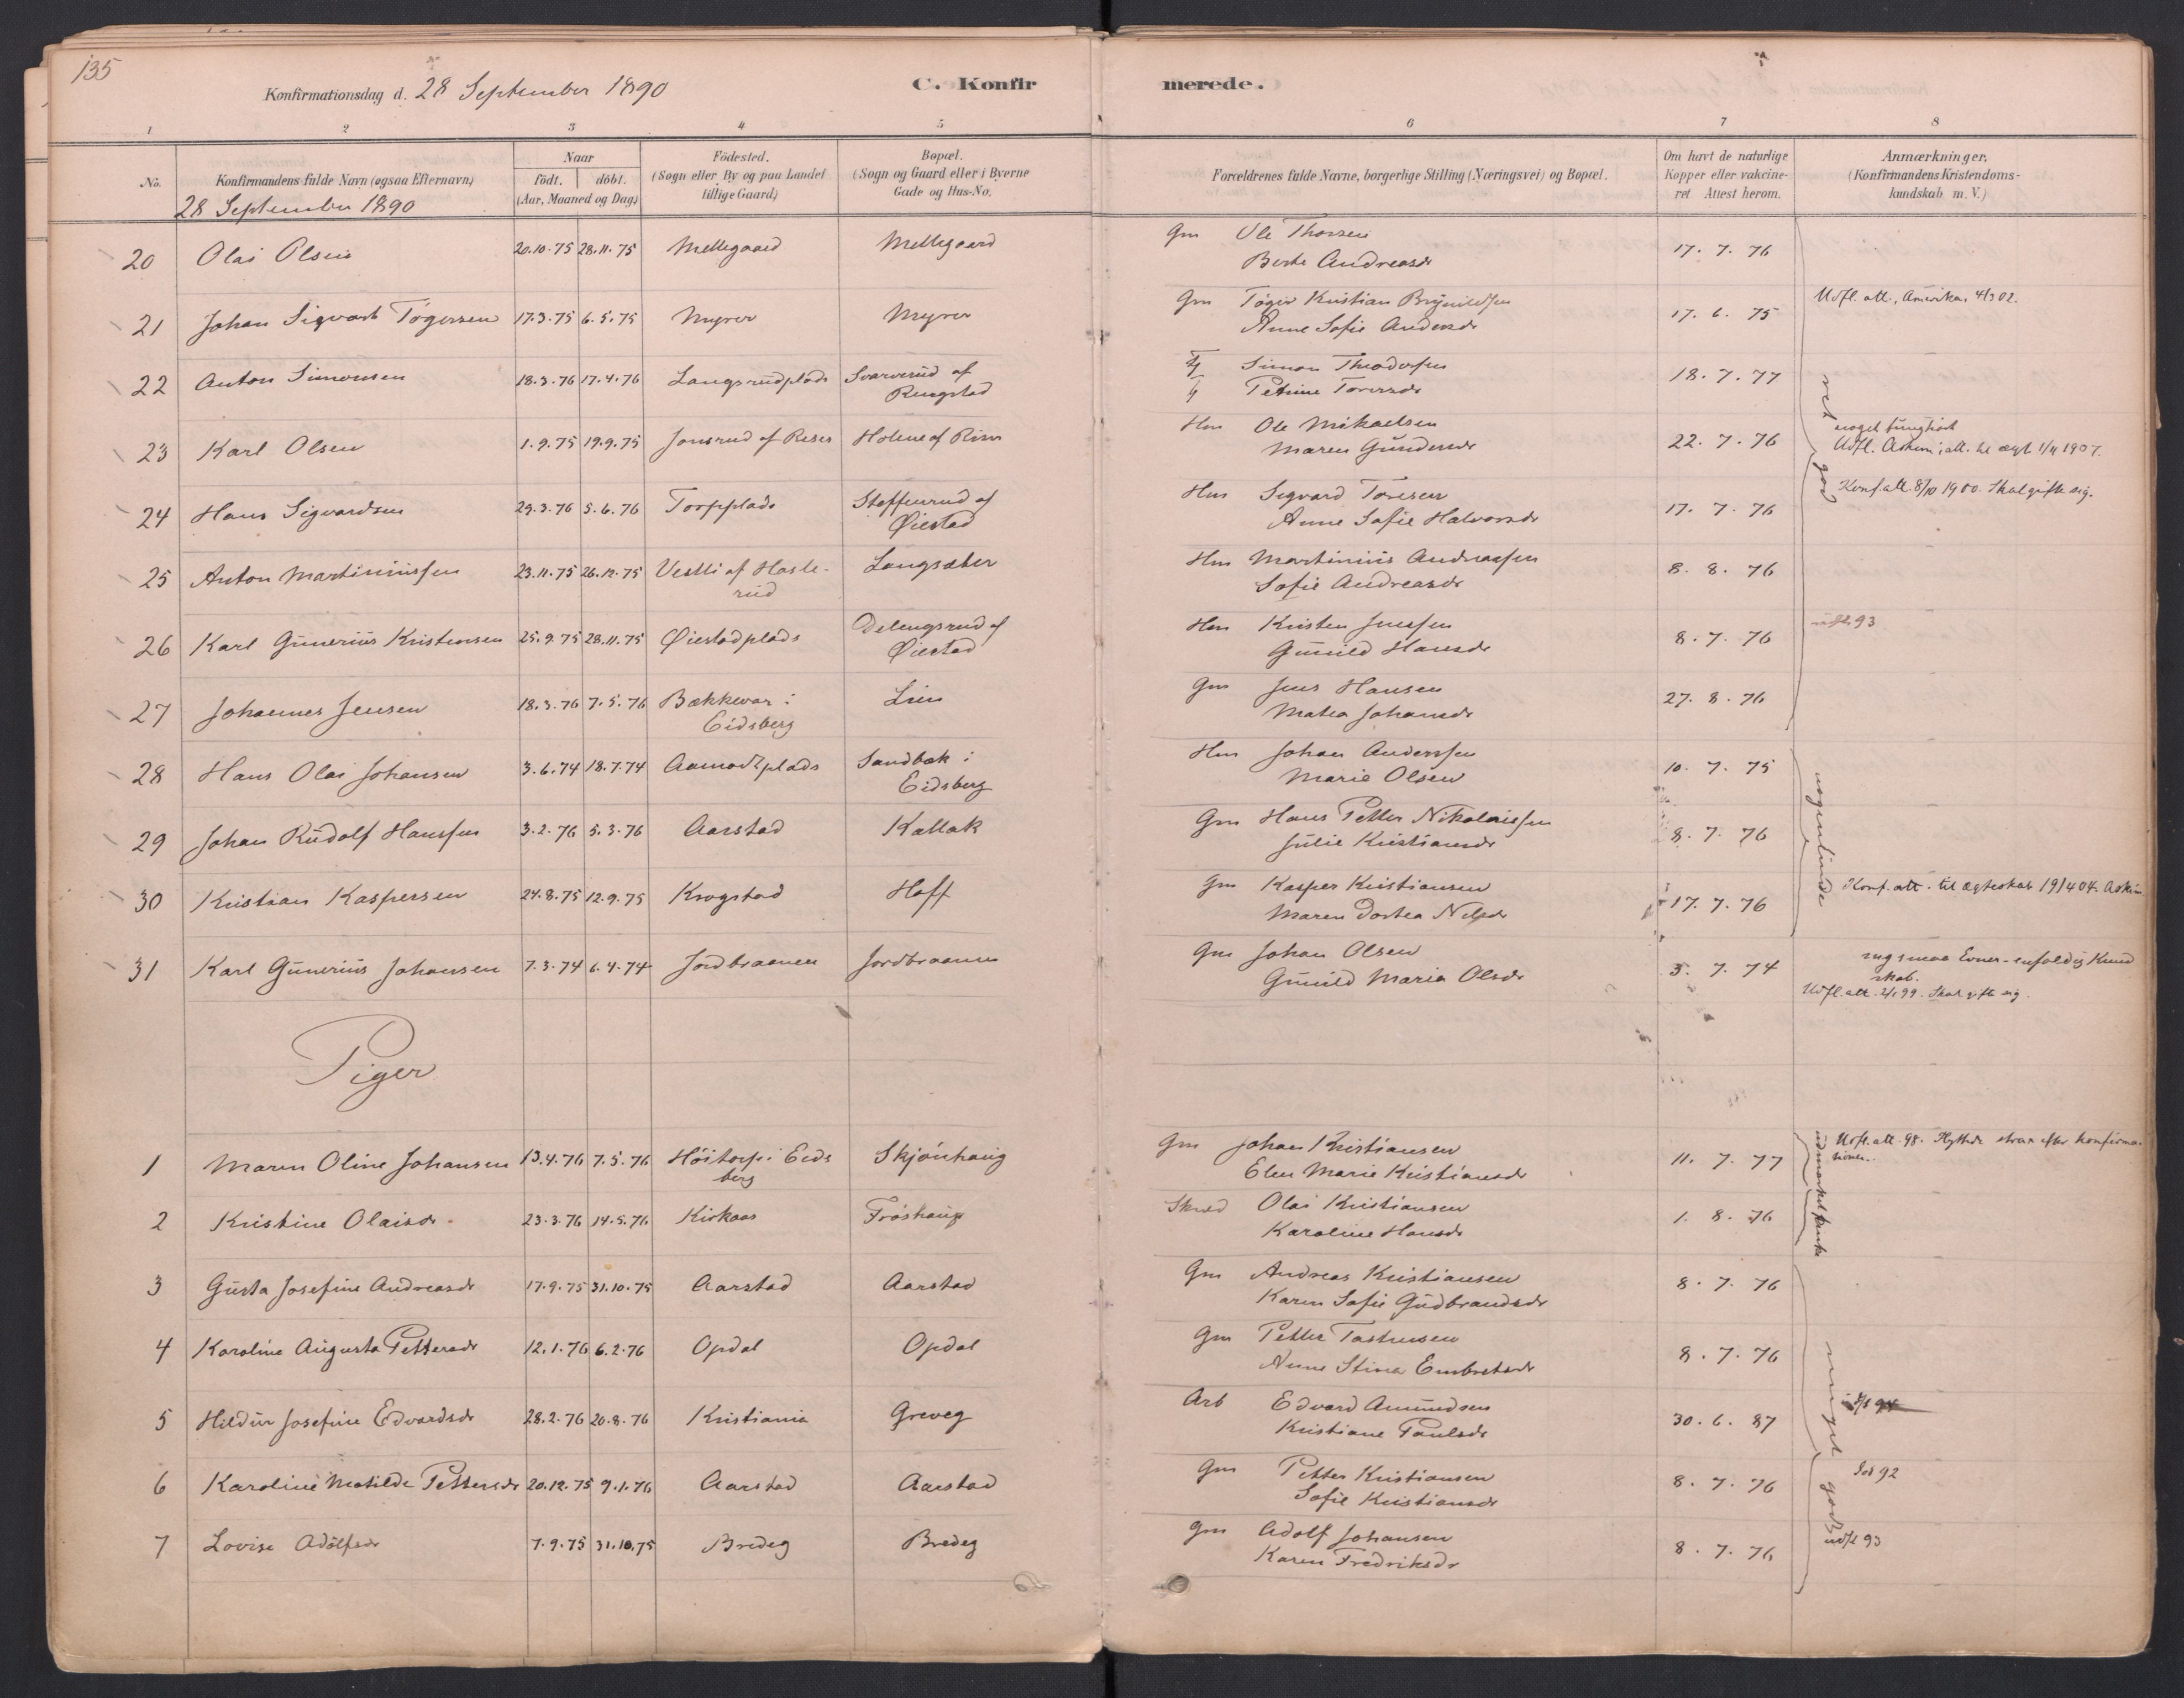 135
Konfirmationsdag d. 28 September 1890
C. Konfirmerede.
1 2 3 4 5 6 7 8
No.
Konfirmandens fulde Navn (ogsaa Efternavn)
28 September 1890
Naar
født. døbt.
(Aar, Maaned og Dag)
Födested.
(Sogn eller By og paa Landet
tillige Gaard)
Bopæl.
(Sogn og Gaard eller i Byerne
Gade og Hus-No.
Forældrenes fulde Navne, borgerlige Stilling (Næringsvei) og Bopæl.
Om havt de naturlige
Kopper eller vakcine-
ret. Attest herom.
Anmærkninger.
(Konfirmandens Kristendoms-
kundskab m. V.)
20 Olai Olsen 20.10.75 28.11.75 Mellegaard Mellegaard Gm Ole Thorsen
Berte Andreasdr 17. 7. 76
21 Johan Sigvart Tøgersen 17.3.75 6.5.75 Myrer Myrer Gm Tøger Kristian Brynildsen
Anne Sofie Andersdr 17. 6. 75 Udfl. att., Amerika, 4/3 02.
22 Anton Simonsen 18.3.76 17.4.76 Langsrudplads Svarverud af
Rengstad Simon Theodorsen
Petrine Toversdr 18. 7. 77
23 Karl Olsen 1.9.75 19.9.75 Jonsrud af Reser Holene af Risn Hm Ole Mikaelsen
Maren Gundersdr 22. 7. 76 noget tunghørt
Udfl. Askim, att. til ægt. 1/4 1907.
24 Hans Sigvardsen 29.3.76 5.6.76 Torpplads Steffenrud af
Øiestad Hm Sigvard Toresen
Anne Sofie Halvorsdr 17. 7. 76 Konf. att. 8/10 1900. Skal gifte sig.
25 Anton Martiniussen 23.11.75 26.12.75 Vestli af Hasle-
rud Langsæter Hm Martinius Andreassen
Sofie Andreasdr 8. 8. 76
26 Karl Gunerius Kristensen 25.9.75 28.11.75 Øiestadplads Delengsrud af
Øiestad Hm Kristen Jensen
Gunild Hansdr 8. 7. 76 udfl. 93
27 Johannes Jensen 18.3.76 7.5.76 Bækkevar i
Eidsberg Lien Gm Jens Hansen
Matea Johansdr 27. 8. 76
vel god
28 Hans Olai Johansen 3.6.74 18.7.74 Aamodtplads Sandbæk i
Eidsberg Hm Johan Anderssen
Marie Olsen 10. 7. 75
29 Johan Rudolf Hanssen 3.2.76 5.3.76 Aarstad Kallak Gm Hans Petter Nikolaissen
Julie Kristiansdr 8. 7. 76
30 Kristian Kaspersen 24.8.75 12.9.75 Krogstad Hoff Gm Kasper Kristiansen
Maren Dortea Nilsdr 17. 7. 76 Konf. att. til ægteskab 19/4 04. Askim
nogenlunde
31 Karl Gunerius Johansen 7.3.74 6.4.74 Jordbraanen Jordbraanen Gm Johan Olsen
Gunild Maria Olsdr 3. 7. 74 smaa Evner - enfoldig Kund
skab.
Udfl. att. 2/1 99. Skal gifte sig.
Piger
1 Maren Oline Johansen 13.4.76 7.5.76 Høitorp i Eids
berg Skjønhaug Gm Johan Kristiansen
Elen Marie Kristiansdr 11. 7. 77 Udfl. att. 98. Flyttede strax efter konfirma-
tionen.
2 Kristine Olaisdr 23.3.76 14.5.76 Kirkaas Frøshaug Skræd Olai Kristiansen
Karoline Hansdr 1. 8. 76
3 Gusta Josefine Andreasdr 17.9.75 31.10.75 Aarstad Aarstad Gm Andreas Kristiansen
Karen Sofie Gudbrandsdr 8. 7. 76
4 Karoline Augusta Pettersdr 12.1.76 6.2.76 Opdal Opdal Gm Petter Tostensen
Anne Stina Embretsdr 8. 7. 76
5 Hildur Josefine Edvardsdr 28.2.76 20.8.76 Kristiania Greveg Arb Edvard Amundsen
Kristiane Paulsdr 30. 6. 87
6 Karoline Matilde Pettersdr 20.12.75 9.1.76 Aarstad Aarstad Gm Petter Kristiansen
Sofie Kristiansdr 8. 7. 76
7 Lovise Adolfsdr 7.9.75 31.10.75 Bredeg Bredeg Gm Adolf Johansen
Karen Fredriksdr 8. 7. 76 udfl 93
meget godt